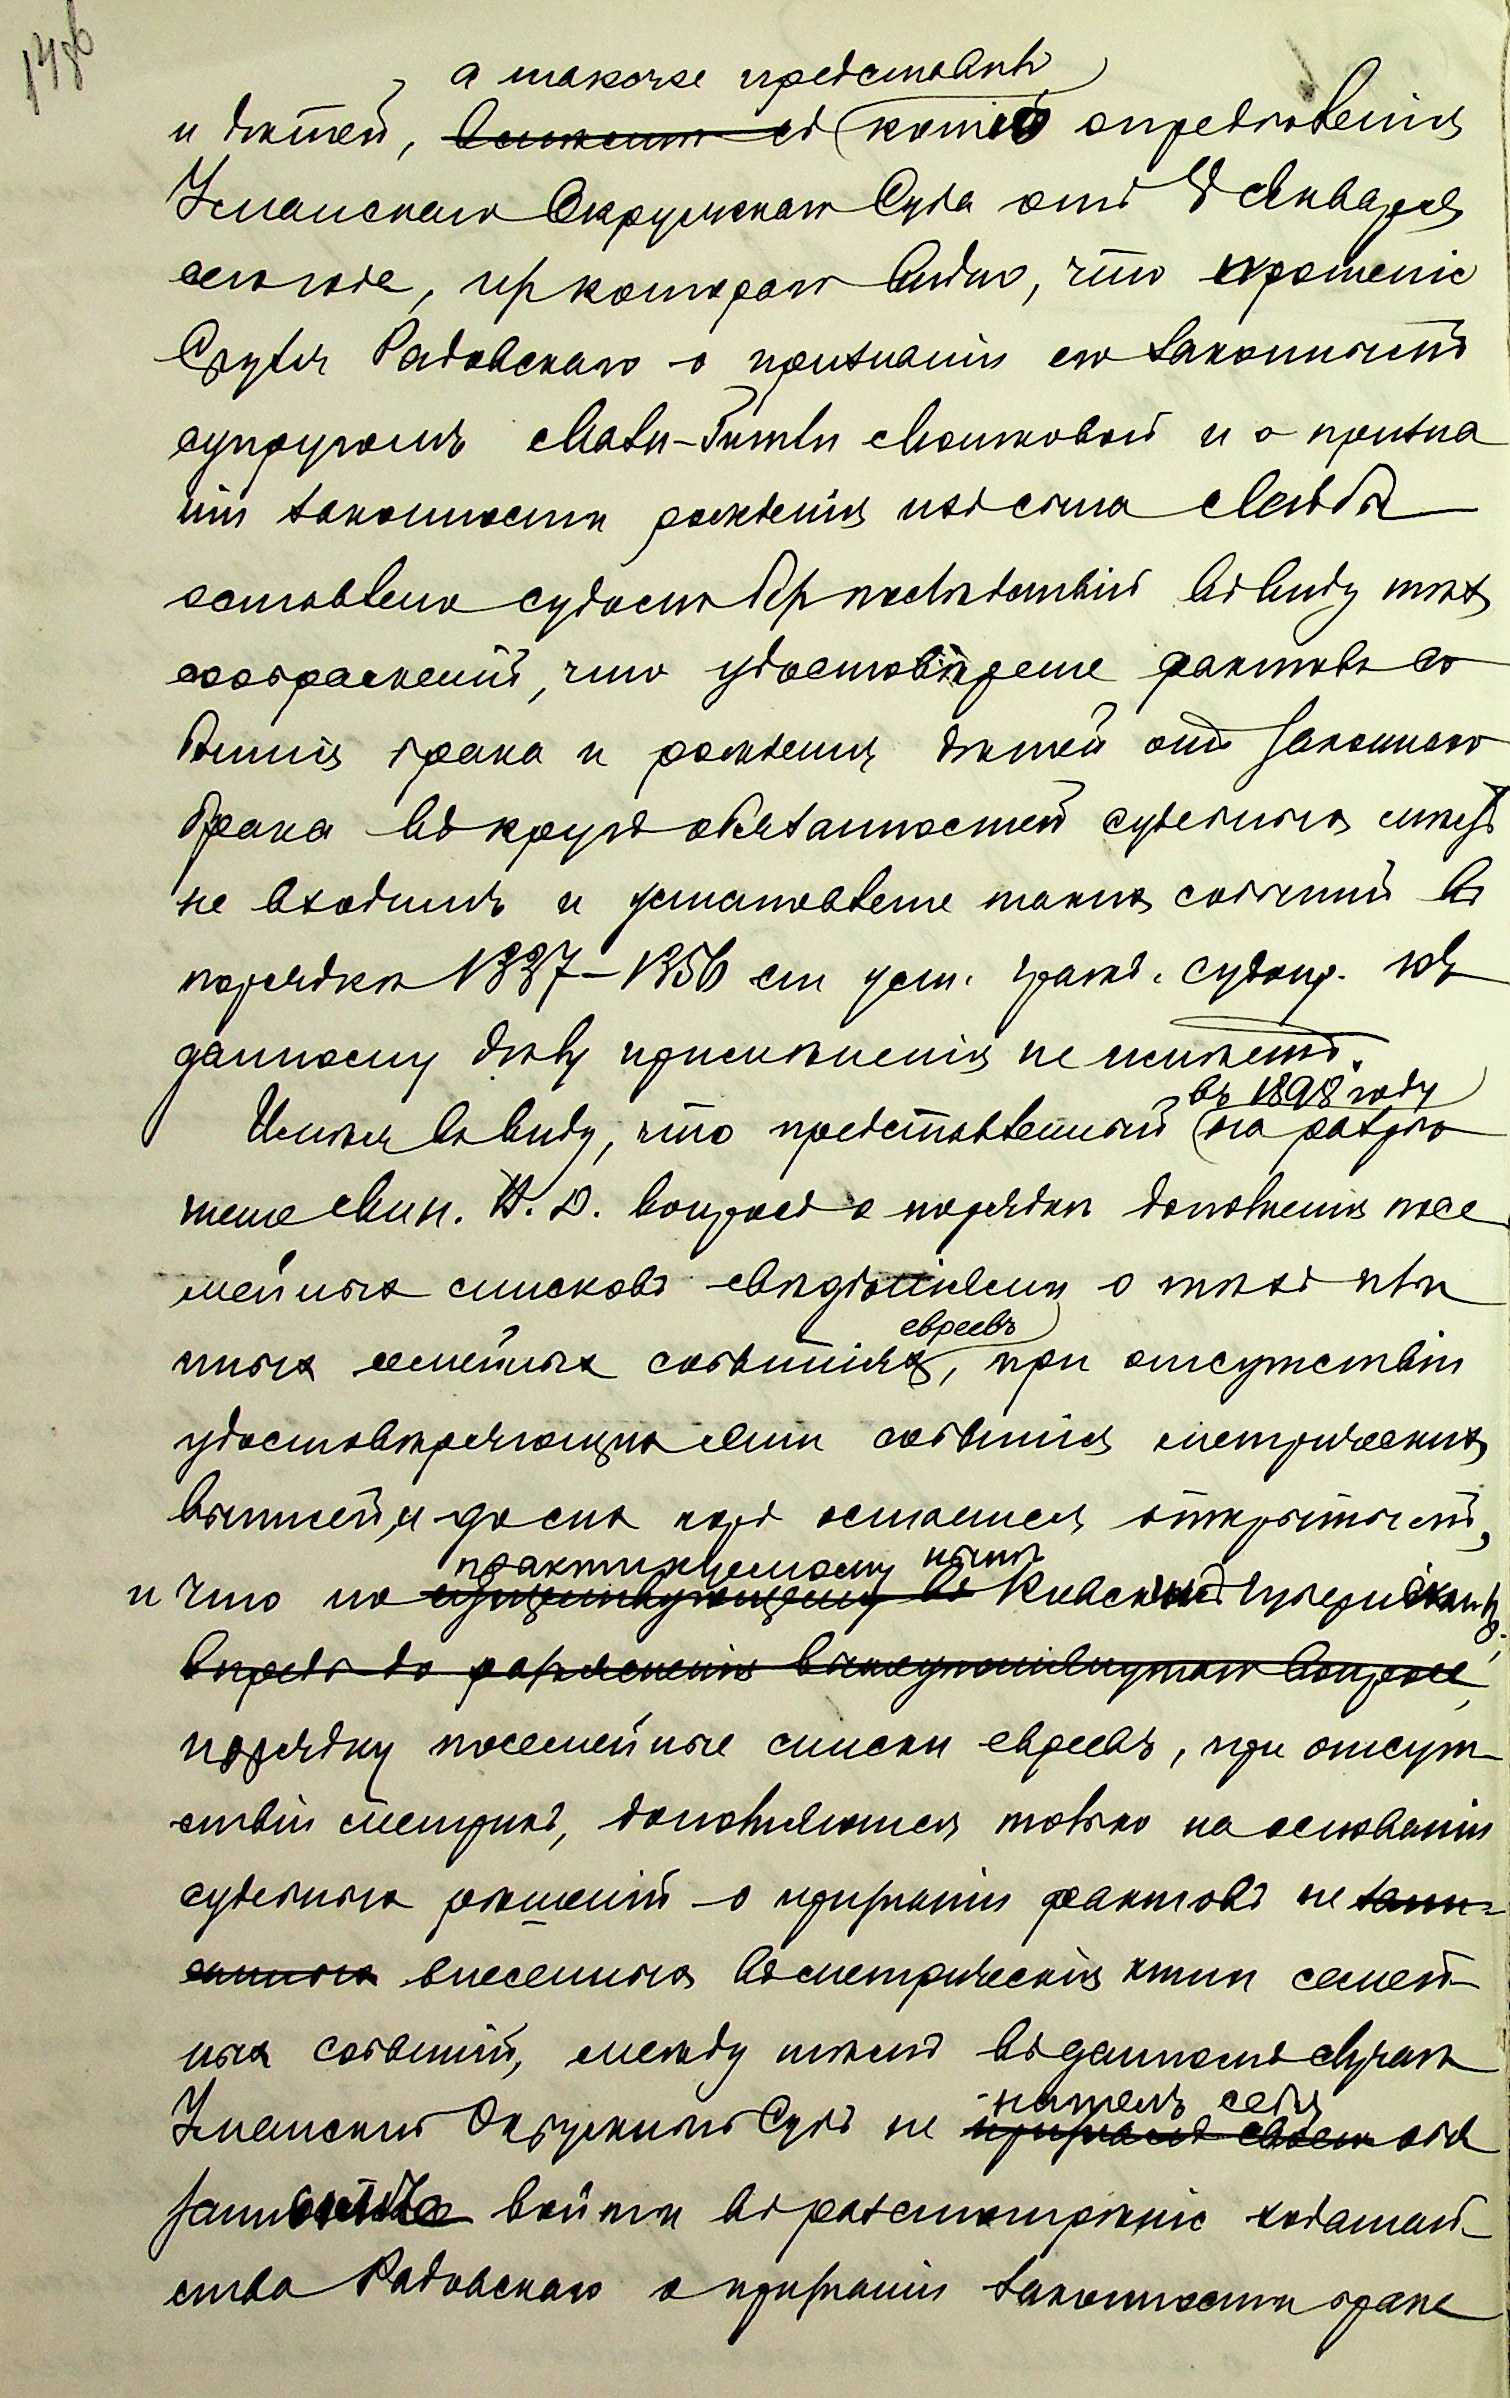 а также представилъ
и дѣтей, копію опредѣленія
Уманскаго Окружнаго Суда отъ Января
сего года, изъ котораго видно, что прошеніе
Сруля Радовскаго о признаніи его законнымъ
супругомъ Мошковой и о призна
ніи законности рожденія сына
оставлено судомъ безъ послѣдствій въ виду тѣхъ
соображеній, что удостовѣреніе фактовъ со
бытія брака и рожденія дѣтей отъ законнаго
брака въ кругъ обязанностей судебныхъ мѣстъ
не входитъ и установленіе такихъ событій въ
порядкѣ 1337–1356 ст уст. гражд. судопр. къ
данному дѣлу примѣненія не имѣетъ.
въ 1898 году
Имѣя въ виду, что представленный на разрѣ
шеніе Мин. В. Д. вопросъ о порядкѣ дополненія посе
мейныхъ списковъ свѣдѣніями о тѣхъ или
евреевъ
иныхъ семейныхъ событіяхъ, при отсутствіи
удостовѣряющихъ эти событія метрическихъ
выписей, и до сихъ поръ остается открытымъ,
практикуемому нынѣ
и что по существующему въ Кіевской губерніи
впредь до разъясненія вышеупомянутаго вопроса,
порядку посемейные списки евреевъ, при отсут-
ствіи метрикъ, дополняются только на основаніи
судебныхъ рѣшеній о признаніи фактовъ не запи-
санныхъ внесенныхъ въ метрическія книги семей-
ныхъ событій, между тѣмъ въ данномъ случаѣ
нашелъ себя
Уманскій Окружный Судъ не призналъ своею обя
войти въ разсмотрѣніе ходатай-
ства Радовскаго о признаніи законности брака